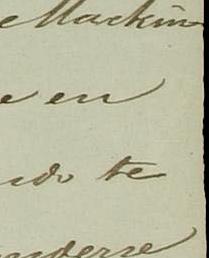 Mackin
e en
ndo te
nderse